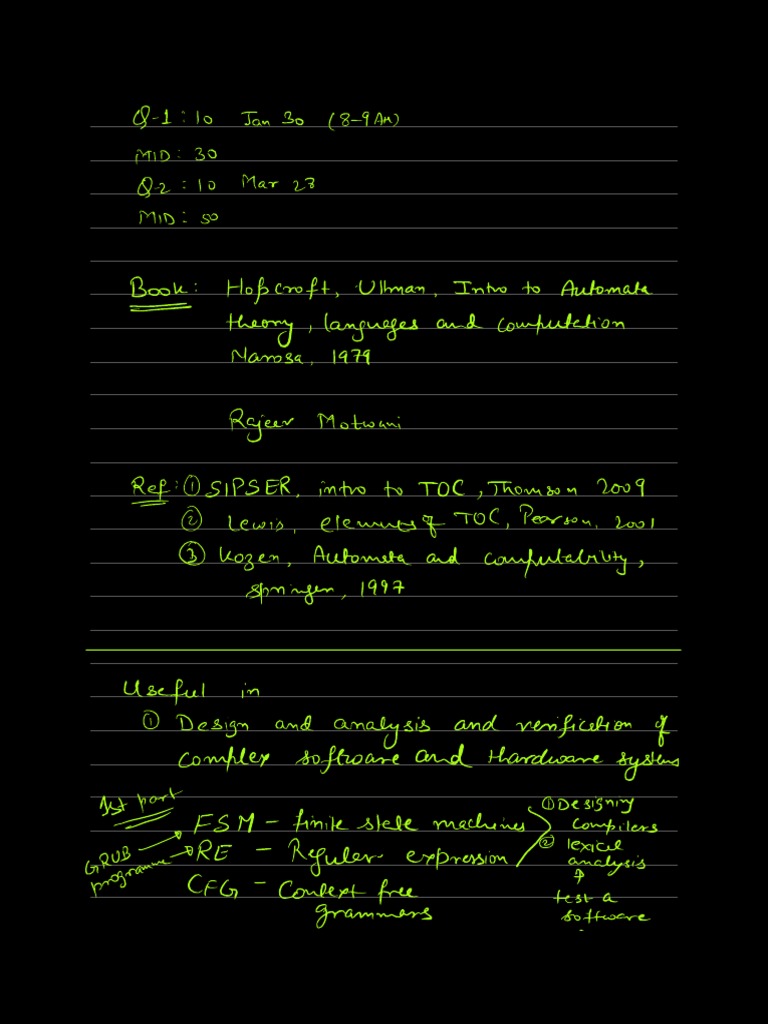 Q-1 : 10 Jan 30 (8-9 AM)
MID : 30
Q-2 : 10 Mar 28
MID : 50
Book : Hopcroft, Ullman, Intro to Automata
theory, languages and computation
Narosa, 1979
Rajeev Motwani
Ref : ① SIPSER, intro to TOC, Thomson 2009
② Lewis, elements of TOC, Pearson, 2001
③ Kozen, Automata and computability,
springer, 1997
Useful in
① Design and analysis and verification of
complex software and Hardware systems
1st part
FSM - finite state machines
GRUB programme
RE - Regular expression
CFG - Context free
grammars
① Designing
compilers
② lexical
analysis
test a
software